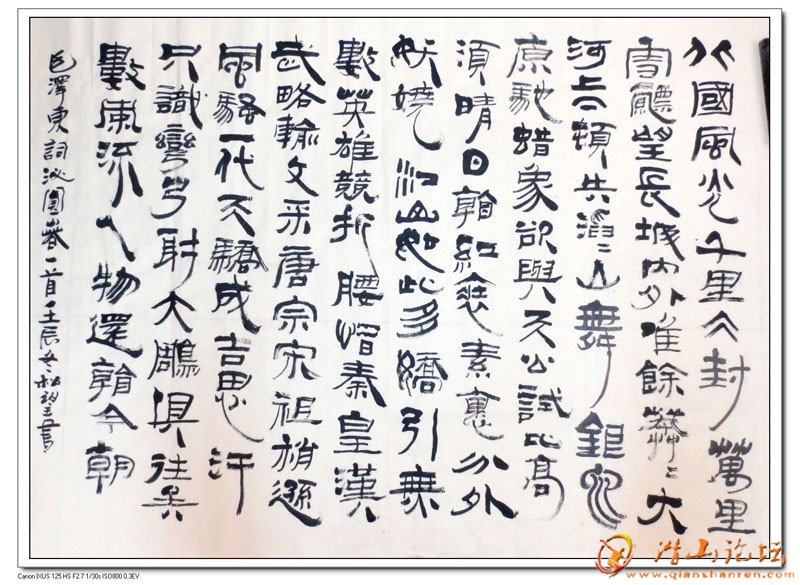 北國風光千里仌封萬里
雪飄望長城內外唯餘莽〻大
河上下頓失滔〻山舞銀蛇
原馳蜡象欲與天公試比高
須晴日看紅裝素裹分外
妖嬈江山如此多嬌引無
數英雄競折腰惜秦皇漢
武略輸文采唐宗宋祖稍遜
風騷一代天驕成吉思汗
只識彎弓射大雕俱往矣
數風流人物還看今朝
毛澤東詞沁園春一首壬辰冬書
Canon IXUS 125 HS F2.7 1/30s ISO800 0.3EV
潜山论坛
www.qianshanren.com